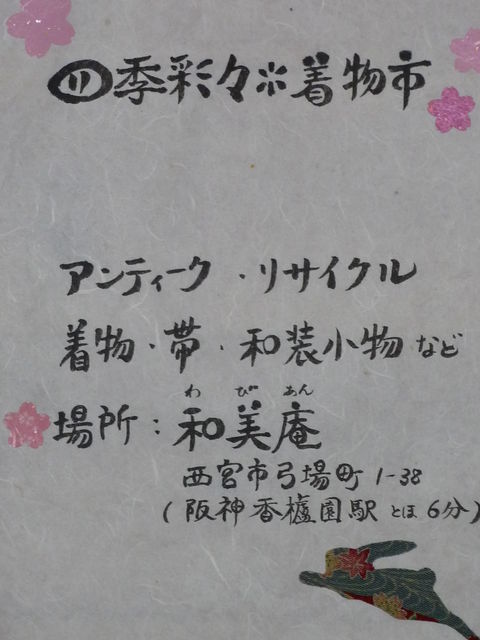 四季彩々※着物市
アンティーク・リサイクル
着物・帯・和装小物など
場所：和美庵
わびあん
西宮市弓場町1-38
(阪神香櫨園駅とほ6分)